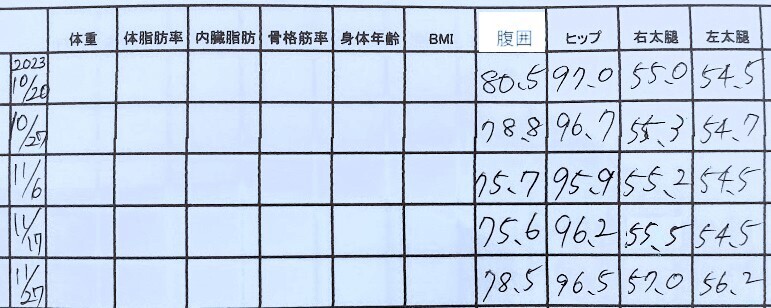 体重 体脂肪率 内臓脂肪 骨格筋率 身体年齢 BMI 腹囲 ヒップ 右太腿 左太腿
2023
10/20 80.5 97.0 55.0 54.5
10/27 78.8 96.7 55.3 54.7
11/6 75.7 95.9 55.2 54.5
11/17 75.6 96.2 55.5 54.5
11/27 78.5 96.5 57.0 56.2